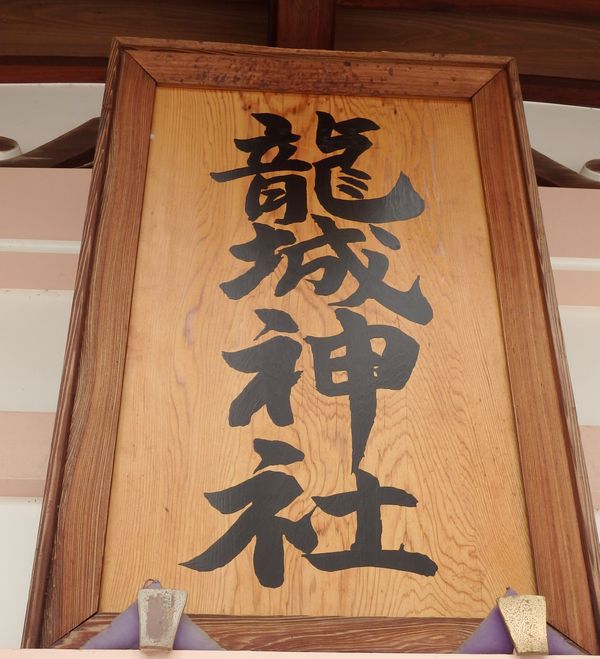 龍城神社